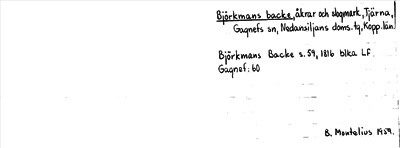 Björkmans backe, åkrar och skogmark, Tjärna,
Gagnefs sn, Nedansiljans doms. tg, Kopp. län.
Björkmans Backe s. 59, 1816 blka LF
Gagnef: 60
B. Montelius 1959.